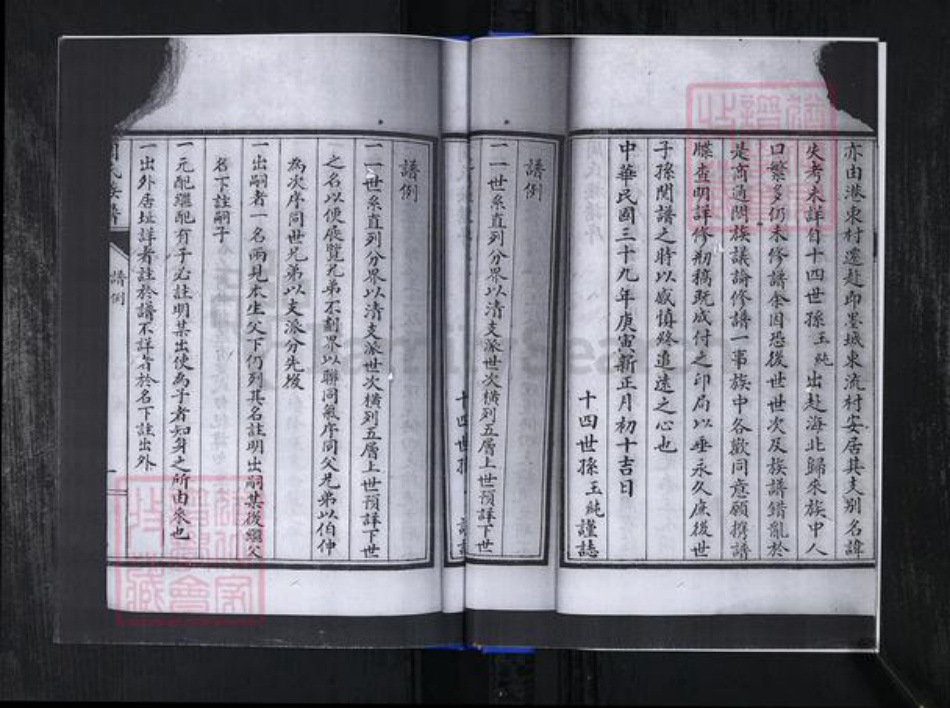 亦由港東村遷赴即墨城東流村安居其支別名諱
失考未詳自十四世孫玉純出赴海北歸來族中人
口繁多仍未修譜余因恐後世世次及族譜錯亂於
是商通闔族議論修譜一事族中各歡同意願攜譜
牒查明詳修刱稿既成付之印局以垂永久庶後世
子孫閱譜之時以感慎終追遠之心也
中華民國三十九年庚寅新正月初十吉日
十四世孫玉純謹誌
譜例
一世系直列分界以清支派世次橫列五層上世預詳下世
十四世孫
譜例
一世系直列分界以清支派世次橫列五層上世預詳下世
之名以便展覽兄弟不劃界以聯同氣序同父兄弟以伯仲
為次序同世兄弟以支派分先後
一出嗣者一名兩見本生父下仍列其名註明出嗣某後繼父
名下註嗣子
一元配繼配有子必註明某出使為子者知身之所由來也
一出外居址詳者註於譜不詳者於名下註出外
氏族譜
譜例